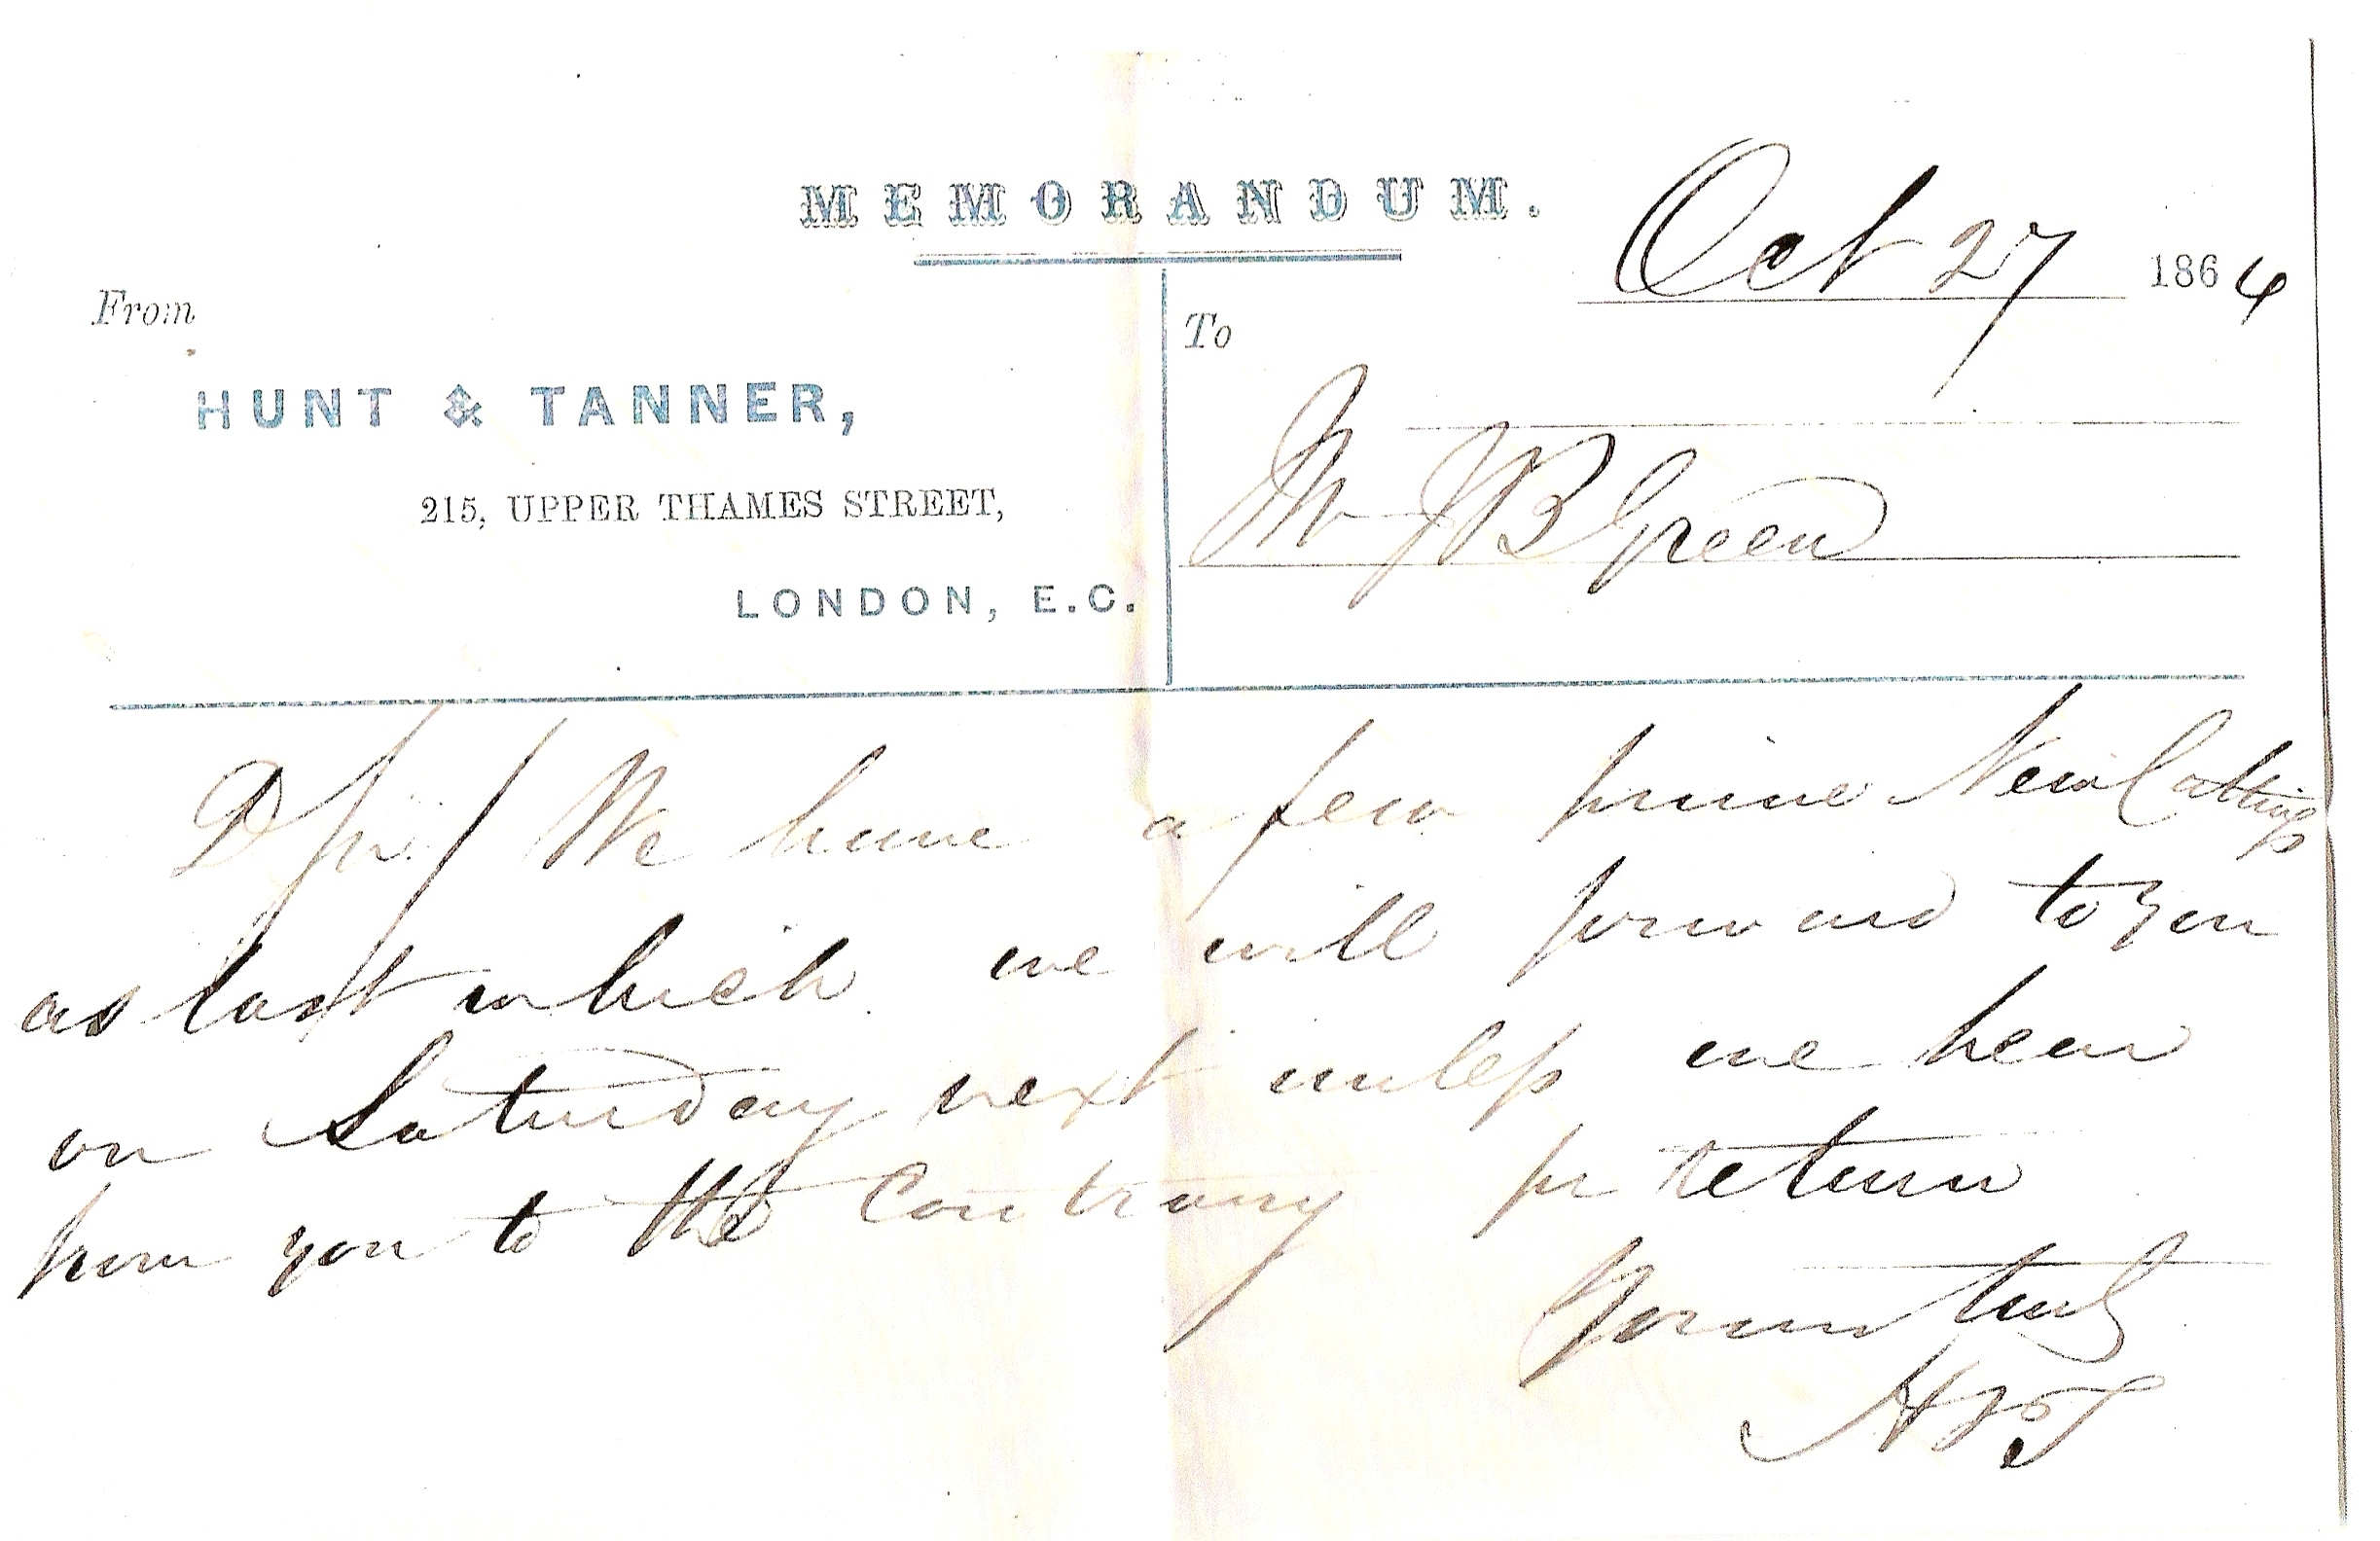 MEMORANDUM.
Oct 27 1864
From
To
HUNT & TANNER,
215, UPPER THAMES STREET,
LONDON, E.C.
Mr J B Green
D Sir/ We have a few prime New Cuttings
as last which we will forward to you
on Saturday next unless we hear
from you to the Contrary pr return
Yours truly
H & T